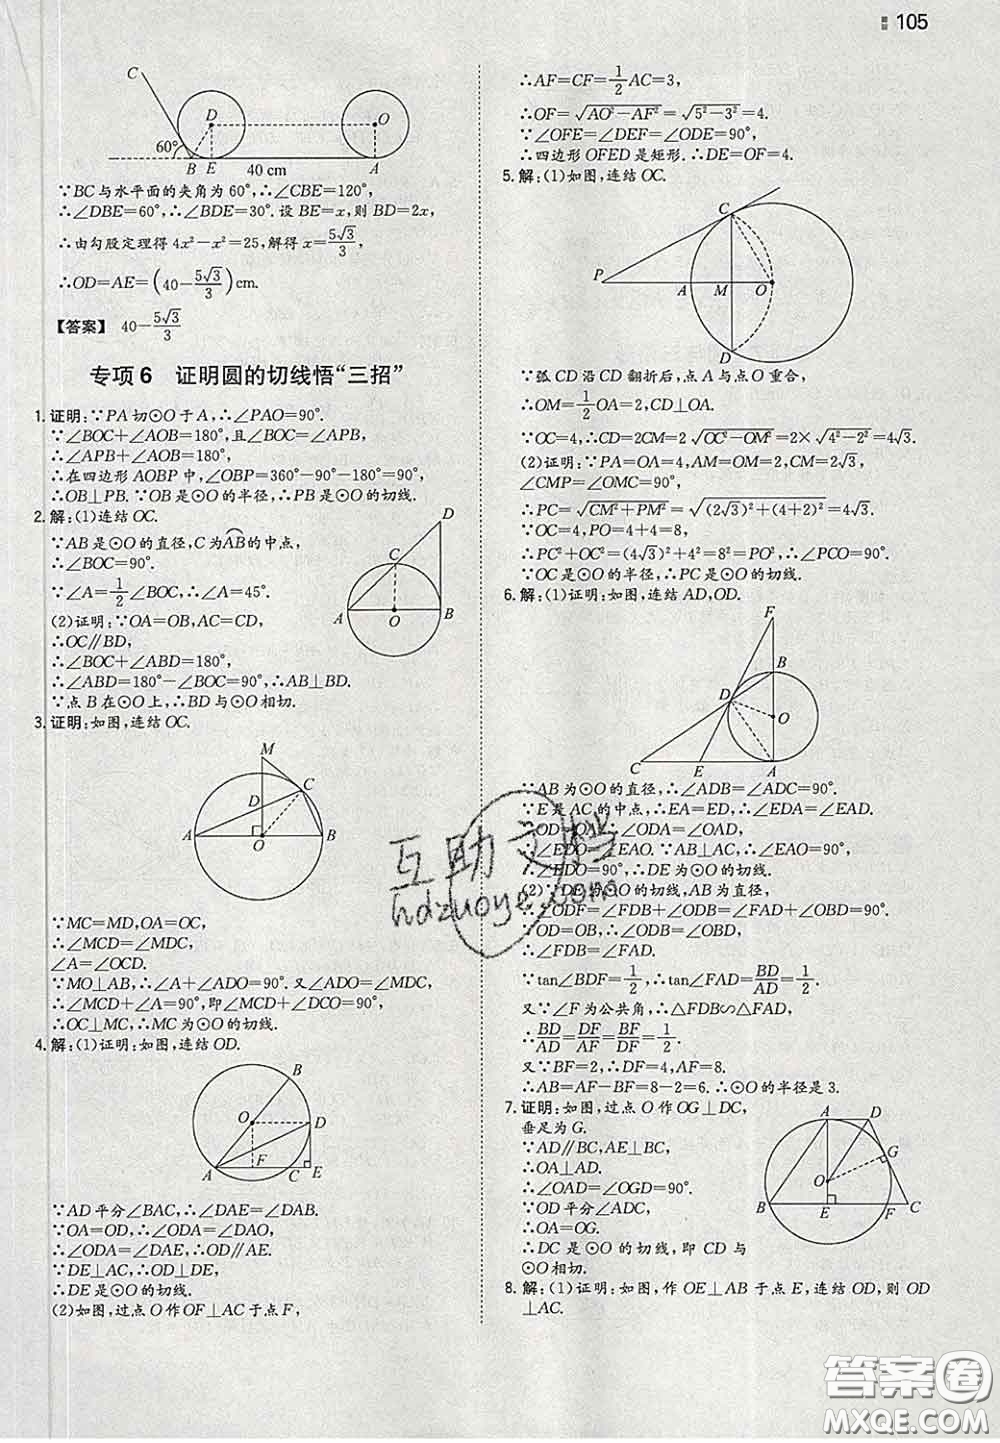 105
C
D
O
60°
B
E
40 cm
A
∵BC与水平面的夹角为60°,∴∠CBE=120°,
∴∠DBE=60°,∴∠BDE=30°.设BE=x,则BD=2x,
∴由勾股定理得4x²-x²=25,解得x=5√3/3,
∴OD=AE=(40-5√3/3)cm.
【答案】 40-5√3/3
专项6 证明圆的切线悟“三招”
1.证明:∵PA切⊙O于A,∴∠PAO=90°.
∵∠BOC+∠AOB=180°,且∠BOC=∠APB,
∴∠APB+∠AOB=180°.
∴在四边形AOBP中,∠OBP=360°-90°-180°=90°,
∴OB⊥PB.∵OB是⊙O的半径,∴PB是⊙O的切线.
2.解:(1)连结OC.
∵AB是⊙O的直径,C为AB⌒的中点,
∴∠BOC=90°.
∵∠A=1/2∠BOC,∴∠A=45°.
(2)证明:∵OA=OB,AC=CD,
∴OC∥BD,
∴∠BOC+∠ABD=180°,
∴∠ABD=180°-∠BOC=90°,∴AB⊥BD.
∵点B在⊙O上,∴BD与⊙O相切.
D
C
A
O
B
3.证明:如图,连结OC.
M
C
D
A
O
B
∵MC=MD,OA=OC,
∴∠MCD=∠MDC,
∠A=∠OCD.
∵MO⊥AB,∴∠A+∠ADO=90°.又∠ADO=∠MDC,
∴∠MCD+∠A=90°,即∠MCD+∠DCO=90°,
∴OC⊥MC,∴MC为⊙O的切线.
4.解:(1)证明:如图,连结OD.
B
O
D
A
F
C
E
∵AD平分∠BAC,∴∠DAE=∠DAB.
∵OA=OD,∴∠ODA=∠DAO,
∴∠ODA=∠DAE,∴OD∥AE.
∵DE⊥AC,∴OD⊥DE,
∴DE是⊙O的切线.
(2)如图,过点O作OF⊥AC于点F,
∴AF=CF=1/2AC=3,
∴OF=√(AO²-AF²)=√(5²-3²)=4.
∵∠OFE=∠DEF=∠ODE=90°,
∴四边形OFED是矩形.∴DE=OF=4.
5.解:(1)如图,连结OC.
C
P
A
M
O
D
∵弧CD沿CD翻折后,点A与点O重合,
∴OM=1/2OA=2,CD⊥OA.
∵OC=4,∴CD=2CM=2√(OC²-OM²)=2×√(4²-2²)=4√3.
(2)证明:∵PA=OA=4,AM=OM=2,CM=2√3,
∠CMP=∠OMC=90°,
∴PC=√(CM²+PM²)=√((2√3)²+(4+2)²)=4√3.
∵OC=4,PO=4+4=8,
∴PC²+OC²=(4√3)²+4²=8²=PO²,∴∠PCO=90°.
∵OC是⊙O的半径,∴PC是⊙O的切线.
6.解:(1)证明:如图,连结AD,OD.
F
B
D
O
C
E
A
∵AB为⊙O的直径,∴∠ADB=∠ADC=90°.
∵E是AC的中点,∴EA=ED,∴∠EDA=∠EAD.
∵OD=OA,∴∠ODA=∠OAD,
∴∠EDO=∠EAO.∵AB⊥AC,∴∠EAO=90°,
∴∠EDO=90°,∴DE为⊙O的切线.
(2)∵DE为⊙O的切线,AB为直径,
∴∠ODF=∠FDB+∠ODB=∠FAD+∠OBD=90°.
∵OD=OB,∴∠ODB=∠OBD,
∴∠FDB=∠FAD.
∵tan∠BDF=1/2,∴tan∠FAD=BD/AD=1/2.
又∵∠F为公共角,∴△FDB∽△FAD,
∴BD/AD=DF/AF=BF/DF=1/2.
又∵BF=2,∴DF=4,AF=8.
∴AB=AF-BF=8-2=6.∴⊙O的半径是3.
7.证明:如图,过点O作OG⊥DC,
垂足为G.
∵AD∥BC,AE⊥BC,
∴OA⊥AD.
∴∠OAD=∠OGD=90°.
∵OD平分∠ADC,
∴OA=OG.
∴DC是⊙O的切线,即CD与
⊙O相切.
A
D
G
O
B
E
F
C
8.解:(1)证明:如图,作OE⊥AB于点E,连结OD,则OD
⊥AC.
互助文档
hdzuoye.com
答案圈
MXQE.COM